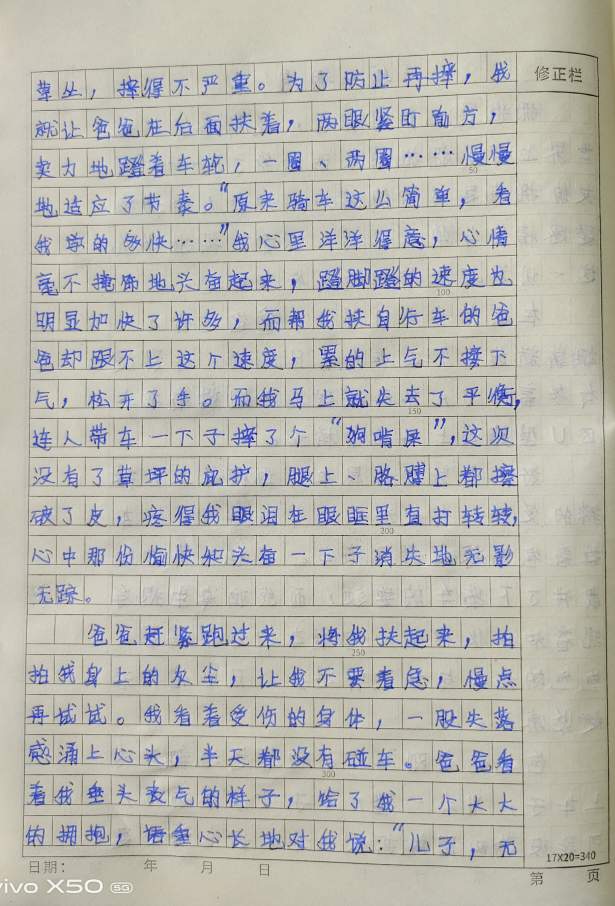 修正栏
草丛，摔得不严重。为了防止再摔，我
就让爸爸在后面扶着，两眼紧盯前方，
卖力地蹬着车轮，一圈、两圈……慢慢
50
地适应了节奏。“原来骑车这么简单，看
我学的多快……”我心里洋洋得意，心情
毫不掩饰地头奋起来，蹬脚蹬的速度也
100
明显加快了许多，而帮我扶自行车的爸
爸却跟不上这个速度，累的上气不接下
气，松开了手。而我马上就失去了平衡，
150
连人带车一下子摔了个“狗啃屎”，这次
没有了草坪的庇护，腿上、胳膊上都擦
破了皮，疼得我眼泪在眼眶里直打转转，
200
心中那份愉快和头奋一下子消失地无影
无踪。
爸爸赶紧跑过来，将我扶起来，拍
250
拍我身上的灰尘，让我不要着急，慢点
再试试。我看着受伤的身体，一股失落
感涌上心头，半天都没有碰车。爸爸看
300
着我垂头丧气的样子，给了我一个大大
的拥抱，语重心长地对我说：“儿子，无
17X20=340
日期： 年 月 日
第 页
vivo X50 5G